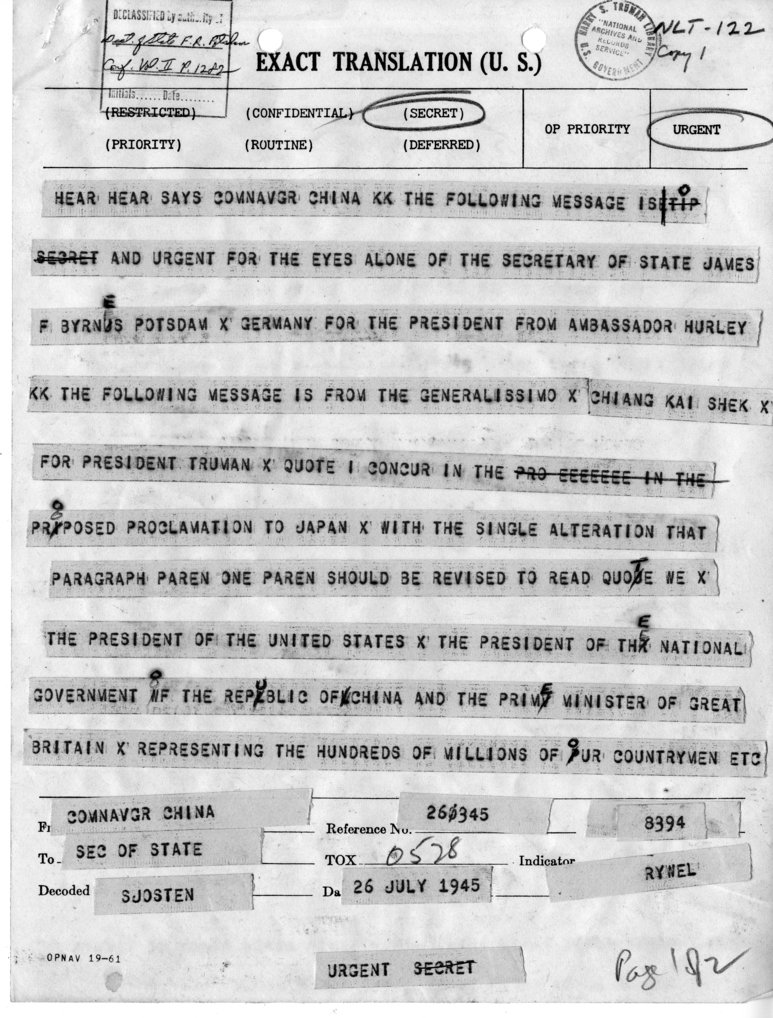 DECLASSIFIED by authority of
Dept. of State F.R. Potsdam
Conf. Vol. II P. 1282
Initials...... Date........
HARRY S. TRUMAN LIBRARY
"NATIONAL
ARCHIVES AND
RECORDS
SERVICE"
GOVERNMENT
NLT-122
Copy 1
EXACT TRANSLATION (U. S.)
(RESTRICTED) (CONFIDENTIAL) (SECRET) OP PRIORITY URGENT
(PRIORITY) (ROUTINE) (DEFERRED)
HEAR HEAR SAYS COMNAVGR CHINA KK THE FOLLOWING MESSAGE IS TIP
O
SECRET AND URGENT FOR THE EYES ALONE OF THE SECRETARY OF STATE JAMES
F BYRNES POTSDAM X GERMANY FOR THE PRESIDENT FROM AMBASSADOR HURLEY
KK THE FOLLOWING MESSAGE IS FROM THE GENERALISSIMO X CHIANG KAI SHEK X
FOR PRESIDENT TRUMAN X QUOTE I CONCUR IN THE PRO EEEEEEE IN THE
PROPOSED PROCLAMATION TO JAPAN X WITH THE SINGLE ALTERATION THAT
PARAGRAPH PAREN ONE PAREN SHOULD BE REVISED TO READ QUOTE WE X
THE PRESIDENT OF THE UNITED STATES X THE PRESIDENT OF THE NATIONAL
GOVERNMENT OF THE REPUBLIC OF CHINA AND THE PRIME MINISTER OF GREAT
BRITAIN X REPRESENTING THE HUNDREDS OF MILLIONS OF OUR COUNTRYMEN ETC
COMNAVGR CHINA Reference No. 260345 8394
To SEC OF STATE TOX 0528 Indicator RYWEL
Decoded SJOSTEN Da 26 JULY 1945
OPNAV 19-61
URGENT SECRET
Page 1 of 2